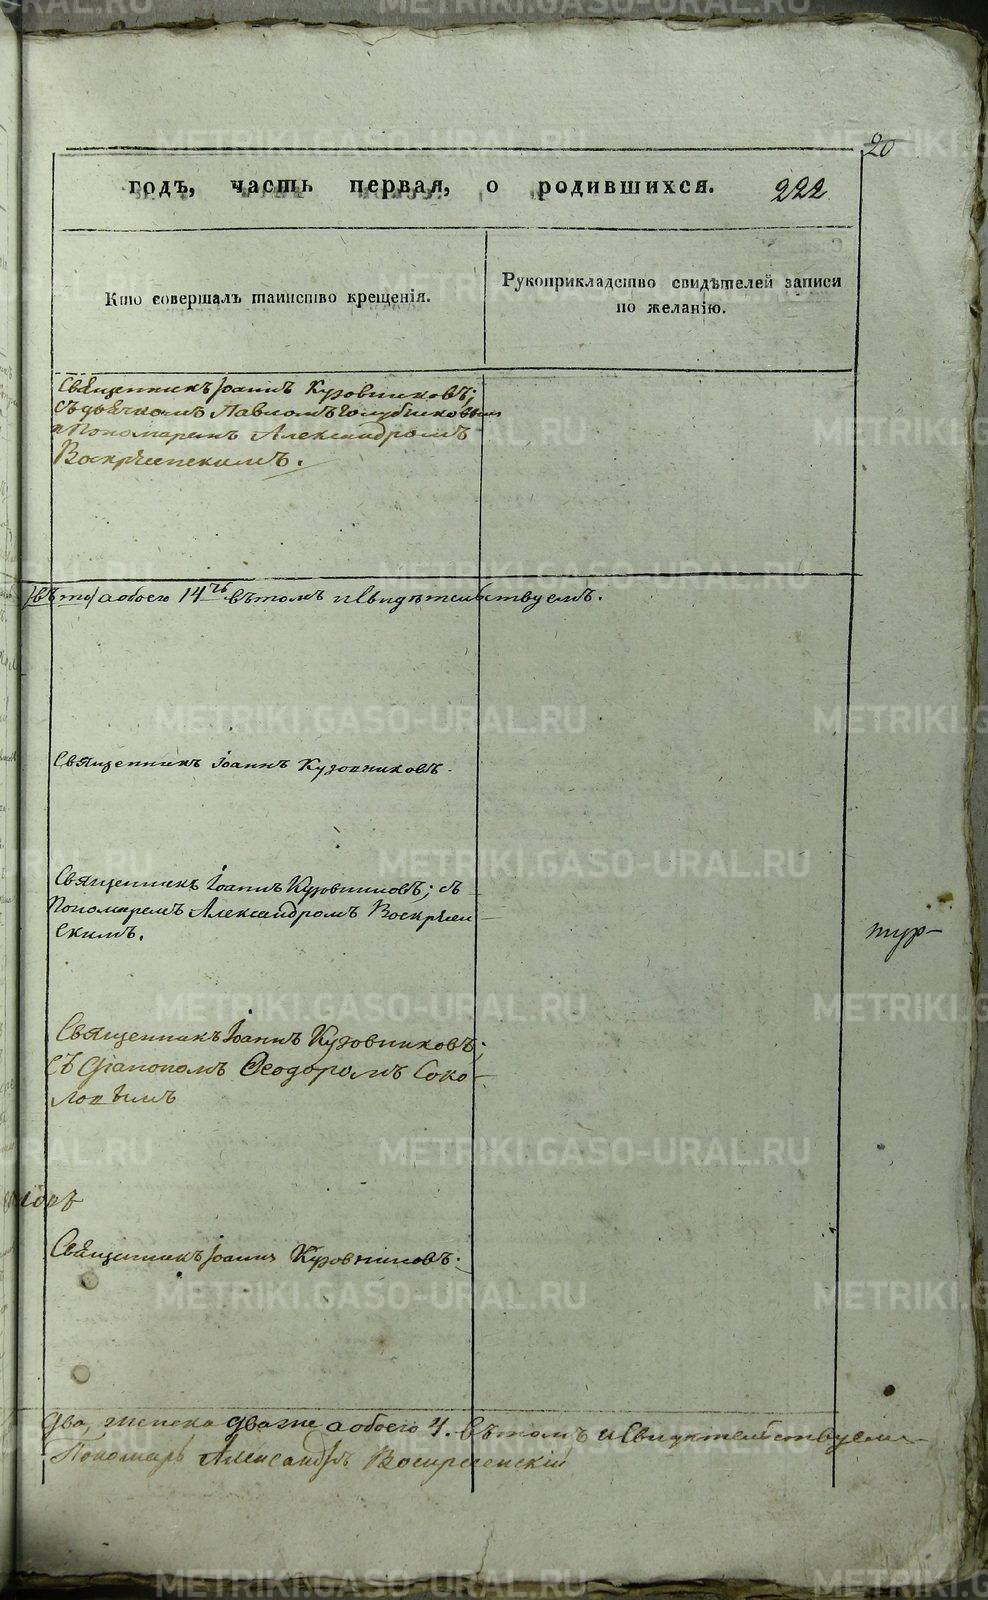 20
годъ, часть первая, о родившихся. 222
Кто совершалъ таинство крещенія.
Рукоприкладство свидѣтелей записи
по желанію.
Священникъ Іоаннъ Кузовниковъ;
съ дьячкомъ Павломъ Голубчиковымъ
и Пономаремъ Александромъ
Воскресенскимъ.
а обоего 14ть въ томъ и свидѣтельствуемъ.
Священникъ Іоаннъ Кузовниковъ.
Священникъ Іоаннъ Кузовниковъ; съ
Пономаремъ Александромъ Воскресен
скимъ.
Священникъ Іоаннъ Кузовниковъ;
съ Діакономъ Ѳеодоромъ Соко-
ловымъ
Священникъ Іоаннъ Кузовниковъ.
два, женска два же а обоего 4. въ томъ и свидѣтельствуемъ
Пономарь Александръ Воскресенскій
METRIKI.GASO-URAL.RU